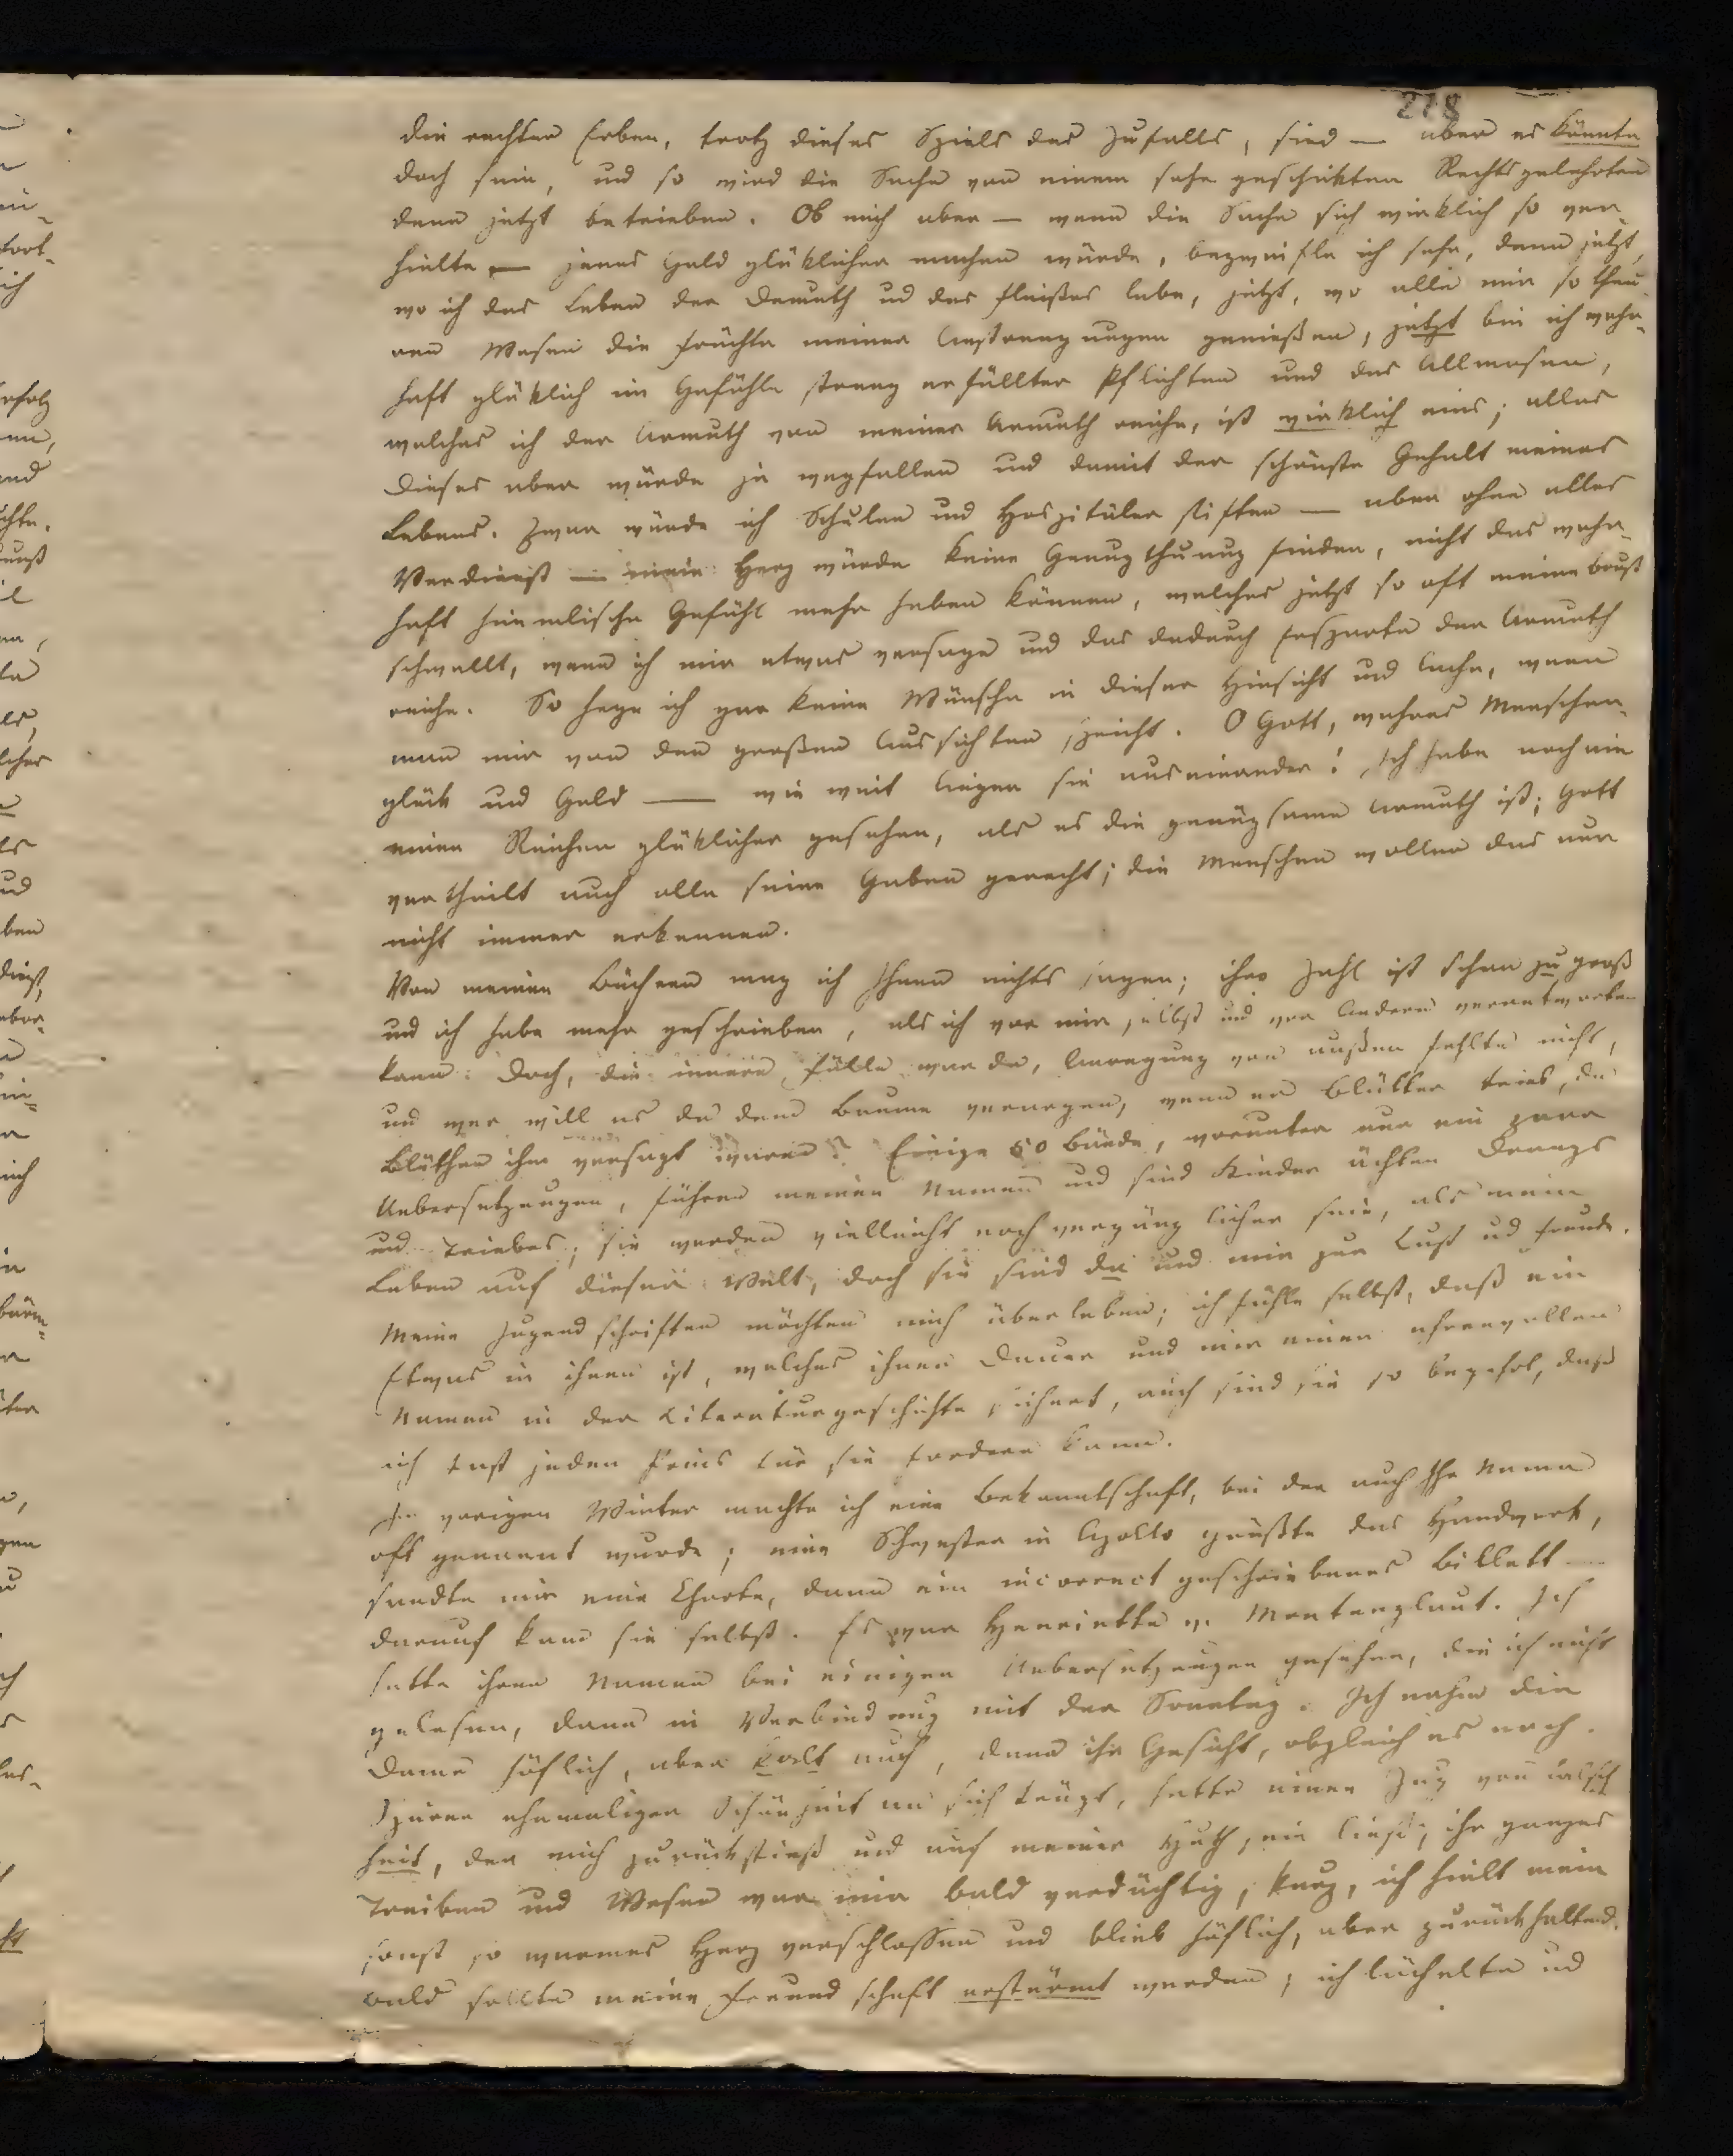 218
die rechten Erben, trotz dieses Spiels des Zufalls, sind — aber es könnte
doch sein, und so wird die Sache von einem sehr geschikten Rechtsgelehrten
denn jetzt betrieben. Ob mich aber — wenn die Sache sich wirklich so ver-
hielte — jenes Geld glüklicher machen würde, bezweifle ich sehr, denn jetzt,
wo ich das Leben der Demuth ud des Fleißes lebe, jetzt, wo alle mir so theu
ren Wesen die Früchte meiner Anstrengungen genießen, jetzt bin ich wahr-
haft glüklich im Gefühle streng erfüllter Pflichten und das Allmosen,
welches ich der Armuth von meiner Armuth reiche, ist wirklich eins; alles
dieses aber würde ja wegfallen und damit der schönste Gehalt meines
Lebens. Zwar würde ich Schulen und Hospitäler stiften — aber ohne alles
Verdienst — mein Herz würde keine Genugthuung finden, nicht das wahr-
haft himmlische Gefühl mehr haben können, welches jetzt so oft meine Brust
schwellt, wenn ich mir etwas versage und das dadurch Ersparte der Armuth
reiche. So hege ich gar keine Wünsche in dieser Hinsicht und lache, wenn
man mir von den großen Aussichten spricht. O Gott, wahres Menschen-
glük und Geld — wie weit liegen sie auseinander! Ich habe noch nie
einen Reichen glüklicher gesehen, als es die genügsame Armuth ist; Gott
vertheilt auch alle seine Gaben gerecht; die Menschen wollen das nur
nicht immer erkennen.
Von meinen Büchern mag ich Ihnen nichts sagen; ihre Zahl ist schon zu groß
und ich habe mehr geschrieben, als ich vor mir selbst und vor Andern verantworten
kann. Doch, die innere Fülle war da, Anregung von außen fehlte nicht,
und wer will es da dem Baume verargen, wenn er Blätter trieb, da
Blüthen ihm versagt waren? Einige 50 Bände, worunter nur ein paar
Uebersetzungen, führen meinen Namen und sind Kinder ächten Drangs
und Triebes; sie werden vielleicht noch vergänglicher sein, als mein
Leben auf dieser Welt, doch sie sind da und mir zur Lust ud Freude.
Meine Jugendschriften möchten mich überleben; ich fühle selbst, daß ein
Etwas in ihnen ist, welches ihnen Dauer und mir einen ehrenvollen
Namen in der Literaturgeschichte sichert, auch sind sie so begehrt, daß
ich fast jeden Preis für sie fordern kann.
Im vorigen Winter machte ich eine Bekanntschaft, bei der auch Ihr Name
oft genannt wurde; eine Schwester in Apollo grüßte das Handwerk,
sandte mir eine Charte, dann ein incorrect geschriebenes Billett
darauf kam sie selbst. Es war Henriette v. Montenglaut. Ich
hatte ihren Namen bei einigen Uebersetzungen gesehen, die ich nicht
gelesen, dann in Verbindung mit der Sontag. Ich nahm die
Dame höflich, aber kalt auf, denn ihr Gesicht, obgleich es noch
Spuren ehemaliger Schönheit an sich trägt, hatte einen Zug von Falsch
heit, der mich zurückstieß und auf meiner Huth sein ließ; ihr ganzes
Treiben und Wesen war mir bald verdächtig, kurz, ich hielt mein
sonst so warmes Herz verschlossen und blieb höflich, aber zurückhaltend.
Bald sollte meine Freundschaft erstürmt werden; ich lächelte ud